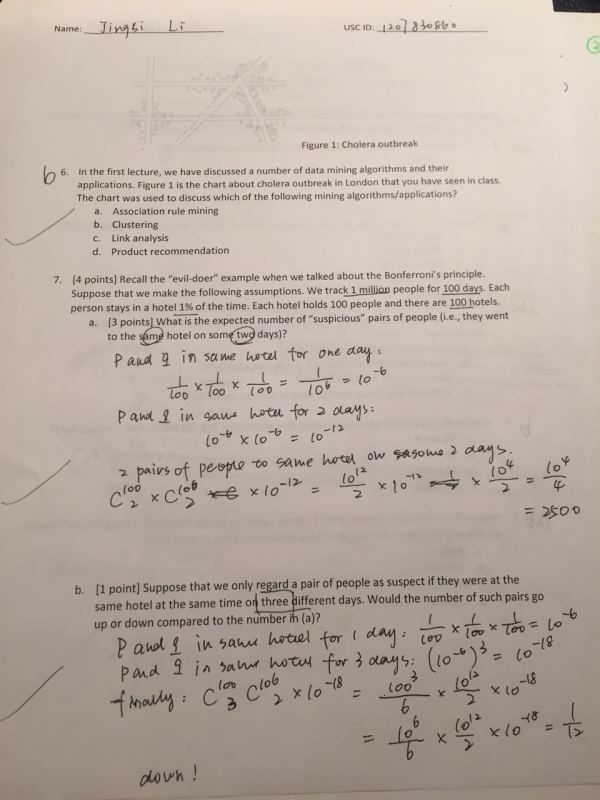 Name: Jingbi Li USC ID: 1207830860
2
Figure 1: Cholera outbreak
b 6. In the first lecture, we have discussed a number of data mining algorithms and their
applications. Figure 1 is the chart about cholera outbreak in London that you have seen in class.
The chart was used to discuss which of the following mining algorithms/applications?
a. Association rule mining
b. Clustering
c. Link analysis
d. Product recommendation
7. [4 points] Recall the "evil-doer" example when we talked about the Bonferroni's principle.
Suppose that we make the following assumptions. We track 1 million people for 100 days. Each
person stays in a hotel 1% of the time. Each hotel holds 100 people and there are 100 hotels.
a. [3 points] What is the expected number of "suspicious" pairs of people (i.e., they went
to the same hotel on some two days)?
P and q in same hotel for one day:
1/100 × 1/100 × 1/100 = 1/10^6 = 10^-6
P and q in same hotel for 2 days:
10^-6 × 10^-6 = 10^-12
2 pairs of people to same hotel on some 2 days.
C_2^100 × C_2^10^6 × 10^-12 = 10^12/2 × 10^-12 × 10^4/2 = 10^4/4
= 2500
b. [1 point] Suppose that we only regard a pair of people as suspect if they were at the
same hotel at the same time on three different days. Would the number of such pairs go
up or down compared to the number in (a)?
P and q in same hotel for 1 day: 1/100 × 1/100 × 1/100 = 10^-6
P and q in same hotel for 3 days: (10^-6)^3 = 10^-18
finally: C_3^100 C_2^10^6 × 10^-18 = 100^3/6 × 10^12/2 × 10^-18
= 10^6/6 × 10^12/2 × 10^-18 = 1/12
down!